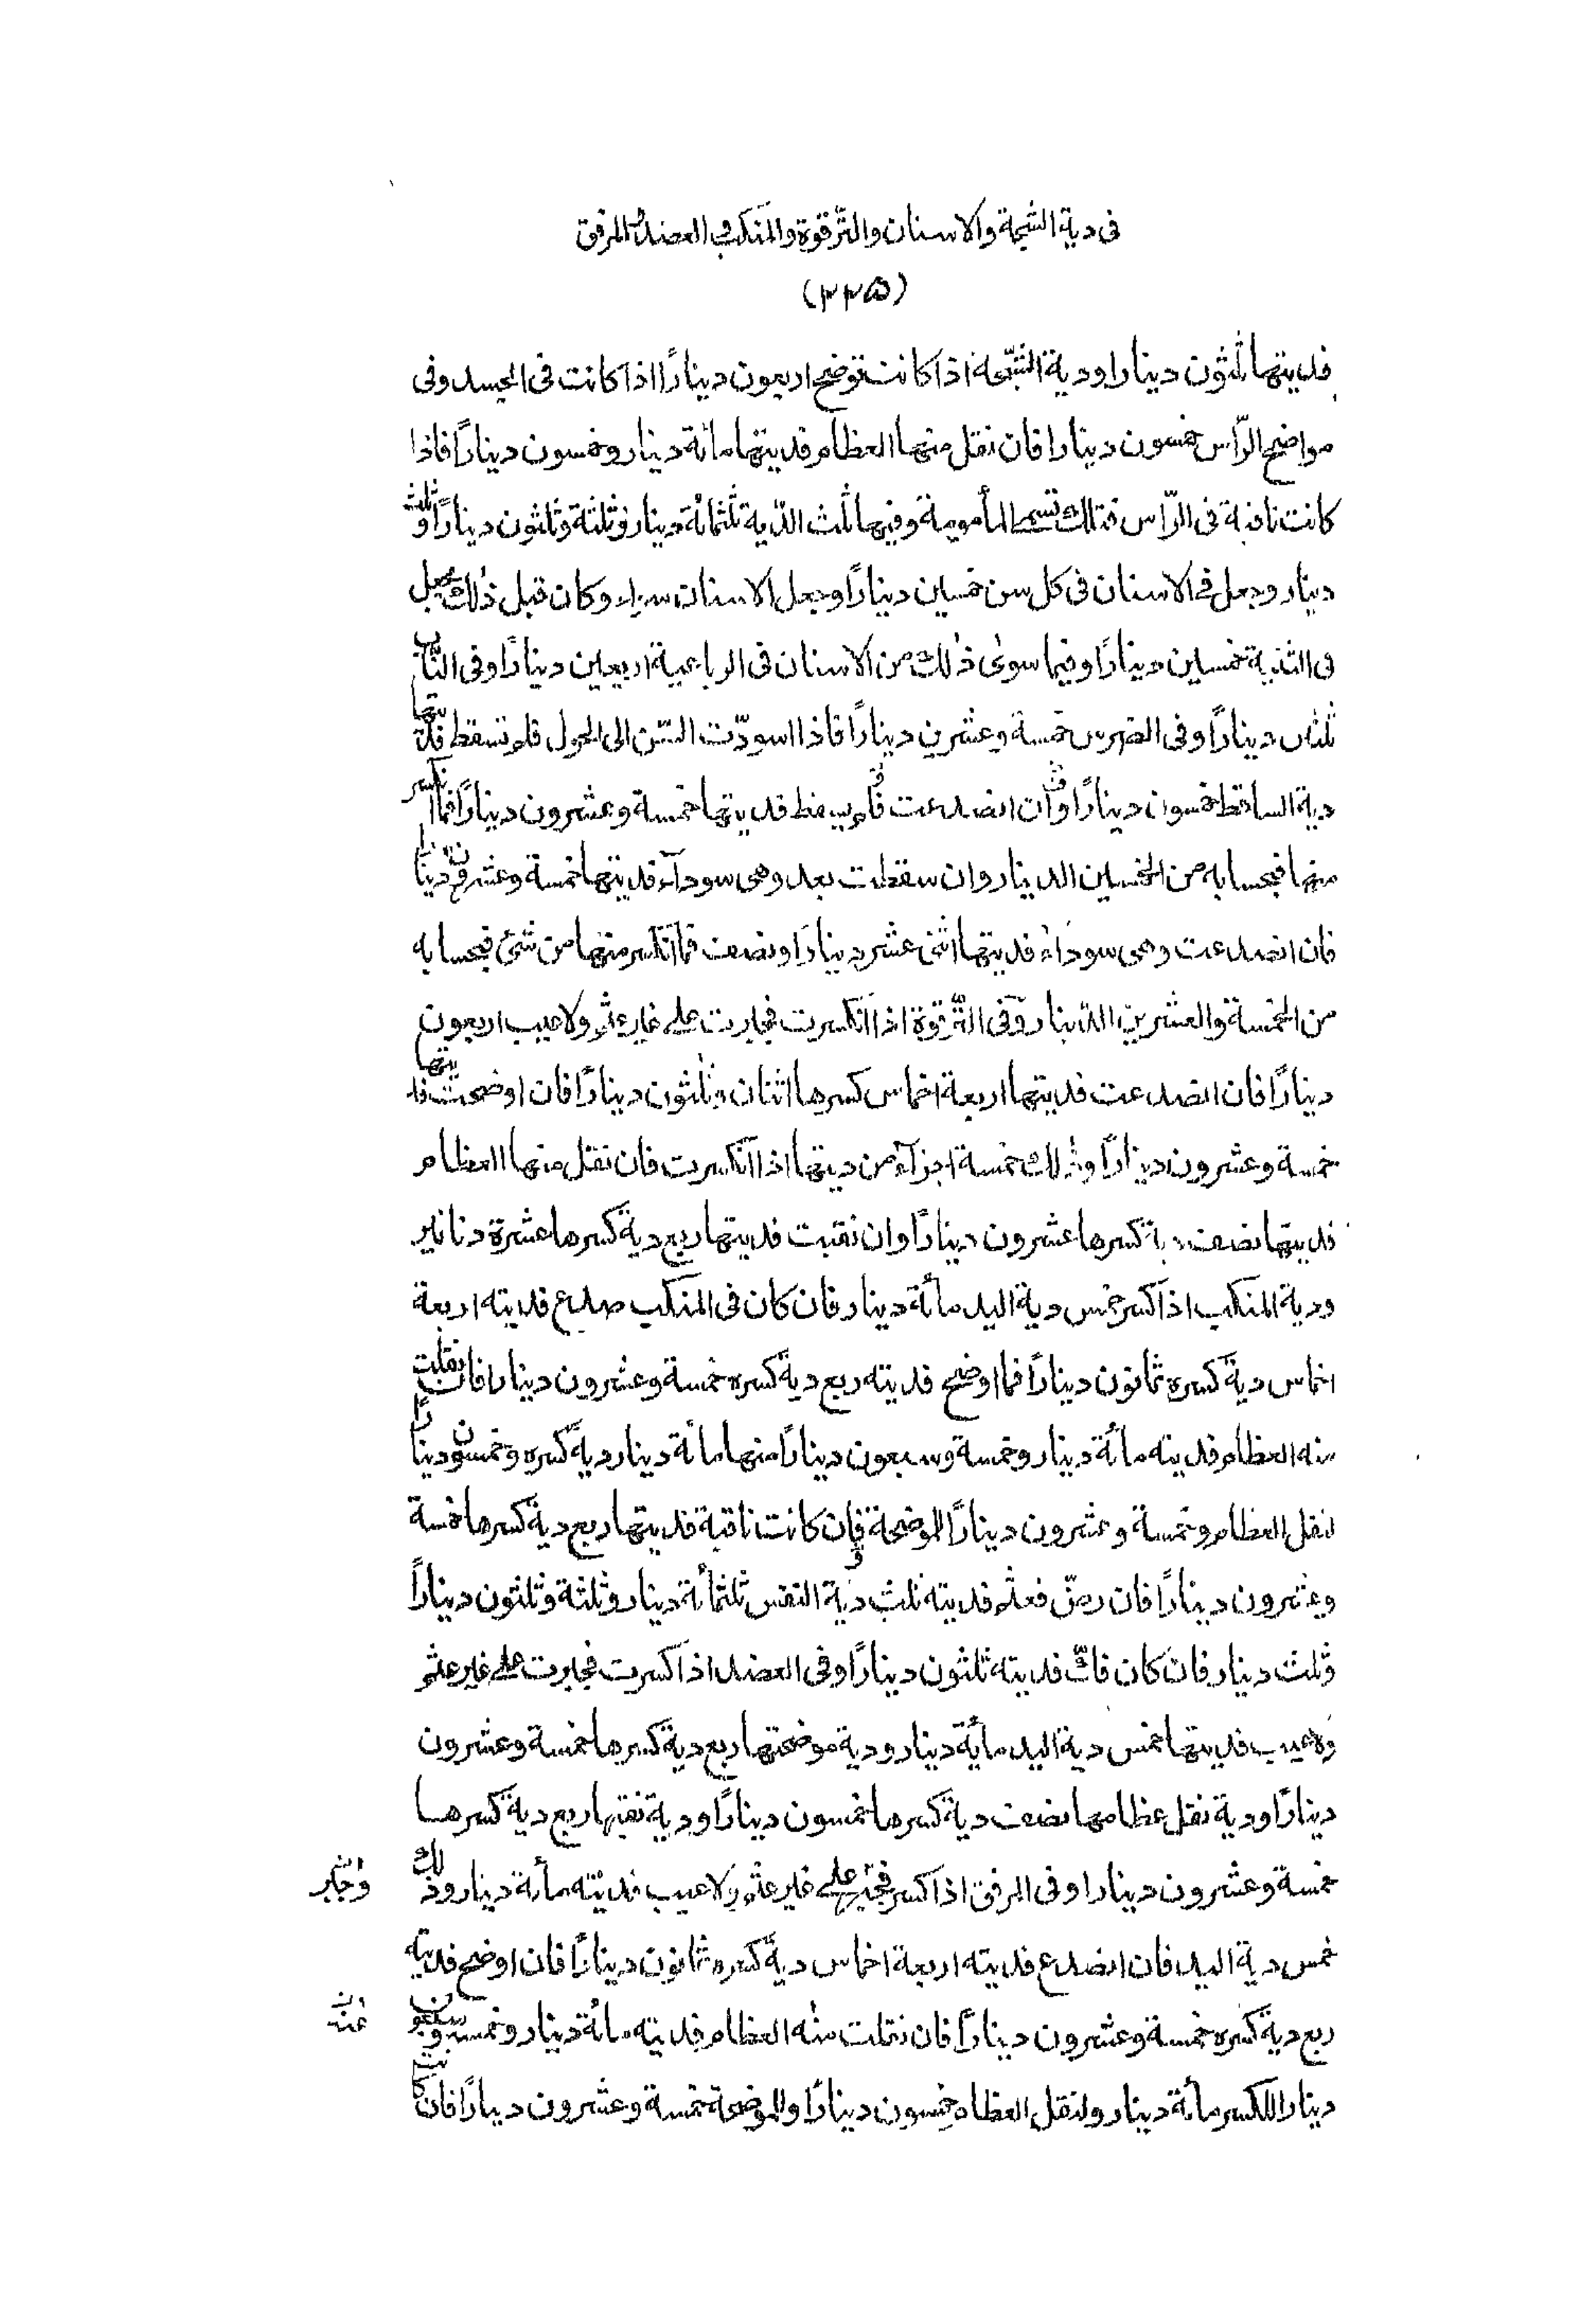 فى دية الشجة والاسنان والترقوة والمنكب والعضد والمرفق
(٢٢۵)
فديتها ثلثون دينارا ودية الشجّة اذا كانت توضح اربعون دينارًا اذا كانت فى الجسد وفى
مواضح الرّاس خمسون دينارا فان نقل منها العظام فديتها مائة دينار وخمسون دينارًا فاذا
كانت نافذة فى الرّاس فتلك تسمى المأمومة وفيها ثلث الدّية ثلثمائة دينار وثلثة وثلثون دينارًا وثلث
دينار وجعل فى الاسنان فى كل سن خمسين دينارًا وجعل الاسنان سواء وكان قبل ذٰلك يجعل
فى الثنية خمسين دينارًا وفيما سوىٰ ذٰلك من الاسنان فى الرباعية اربعين دينارًا وفى النّاب
ثلثين دينارًا وفى الضرس خمسة وعشرين دينارًا فاذا اسودّت السّن الى الحول فلم تسقط فديتها
دية الساقط خمسون دينارًا وان انصدعت فلم يسقط فديتها خمسة وعشرون دينارًا فما انكسر
منها فبحسابه من الخمسين الدينار وان سقطت بعد وهى سودآء فديتها خمسة وعشرون دينارا
فان انصدعت وهى سوداء فديتها اثنى عشر دينارًا ونصف فما انكسر منها من شئ فبحسابه
من الخمسة والعشرين الدّينار وفى التّرقوة اذا انكسرت فجبرت على غير عثم ولا عيب اربعون
دينارًا فان انصدعت فديتها اربعة اخماس كسرها اثنان وثلثون دينارًا فان اوضحت فديتها
خمسة وعشرون دينارًا وذٰلك خمسة اجزآء من ديتها اذا انكسرت فان نقل منها العظام
فديتها نصف دية كسرها عشرون دينارًا وان نقبت فديتها ربع دية كسرها عشرة دنانير
ودية المنكب اذا كسر خمس دية اليد مائة دينار فان كان فى المنكب صدع فديته اربعة
اخماس دية كسره ثمانون دينارًا فما اوضح فديته ربع دية كسره خمسة وعشرون دينارا فان نقلت
منه العظام فديته مائة دينار وخمسة وسبعون دينارًا منها مائة دينار دية كسره وخمسون دينارًا
لنقل العظام وخمسة وعشرون دينارًا للموضحة فان كانت ناقبة فديتها ربع دية كسرها خمسة
وعشرون دينارًا فان رضّ فعثم فديته ثلث دية النفس ثلثمائة دينار وثلثة وثلثون دينارًا
وثلث دينار فان كان فكّ فديته ثلثون دينارًا وفى العضد اذا كسرت فجبرت على غير عثم
ولا عيب فديتها خمس دية اليد مأية دينار ودية موضحتها ربع دية كسرها خمسة وعشرون
دينارًا ودية نقل عظامها نصف دية كسرها خمسون دينارًا ودية نقبها ربع دية كسرها
خمسة وعشرون دينارا وفى المرفق اذا كسر فجبر على غير عثم ولا عيب فديته مأئة دينار وذلك
خمس دية اليد فان انصدع فديته اربعة اخماس دية كسره ثمانون دينارًا فان اوضح فديته
ربع دية كسره خمسة وعشرون دينارًا فان نقلت منه العظام فديته مائة دينار وخمسة وسبعون
دينارا للكسر مائة دينار ولنقل العظام خمسون دينارًا وللموضحة خمسة وعشرون دينارًا فان